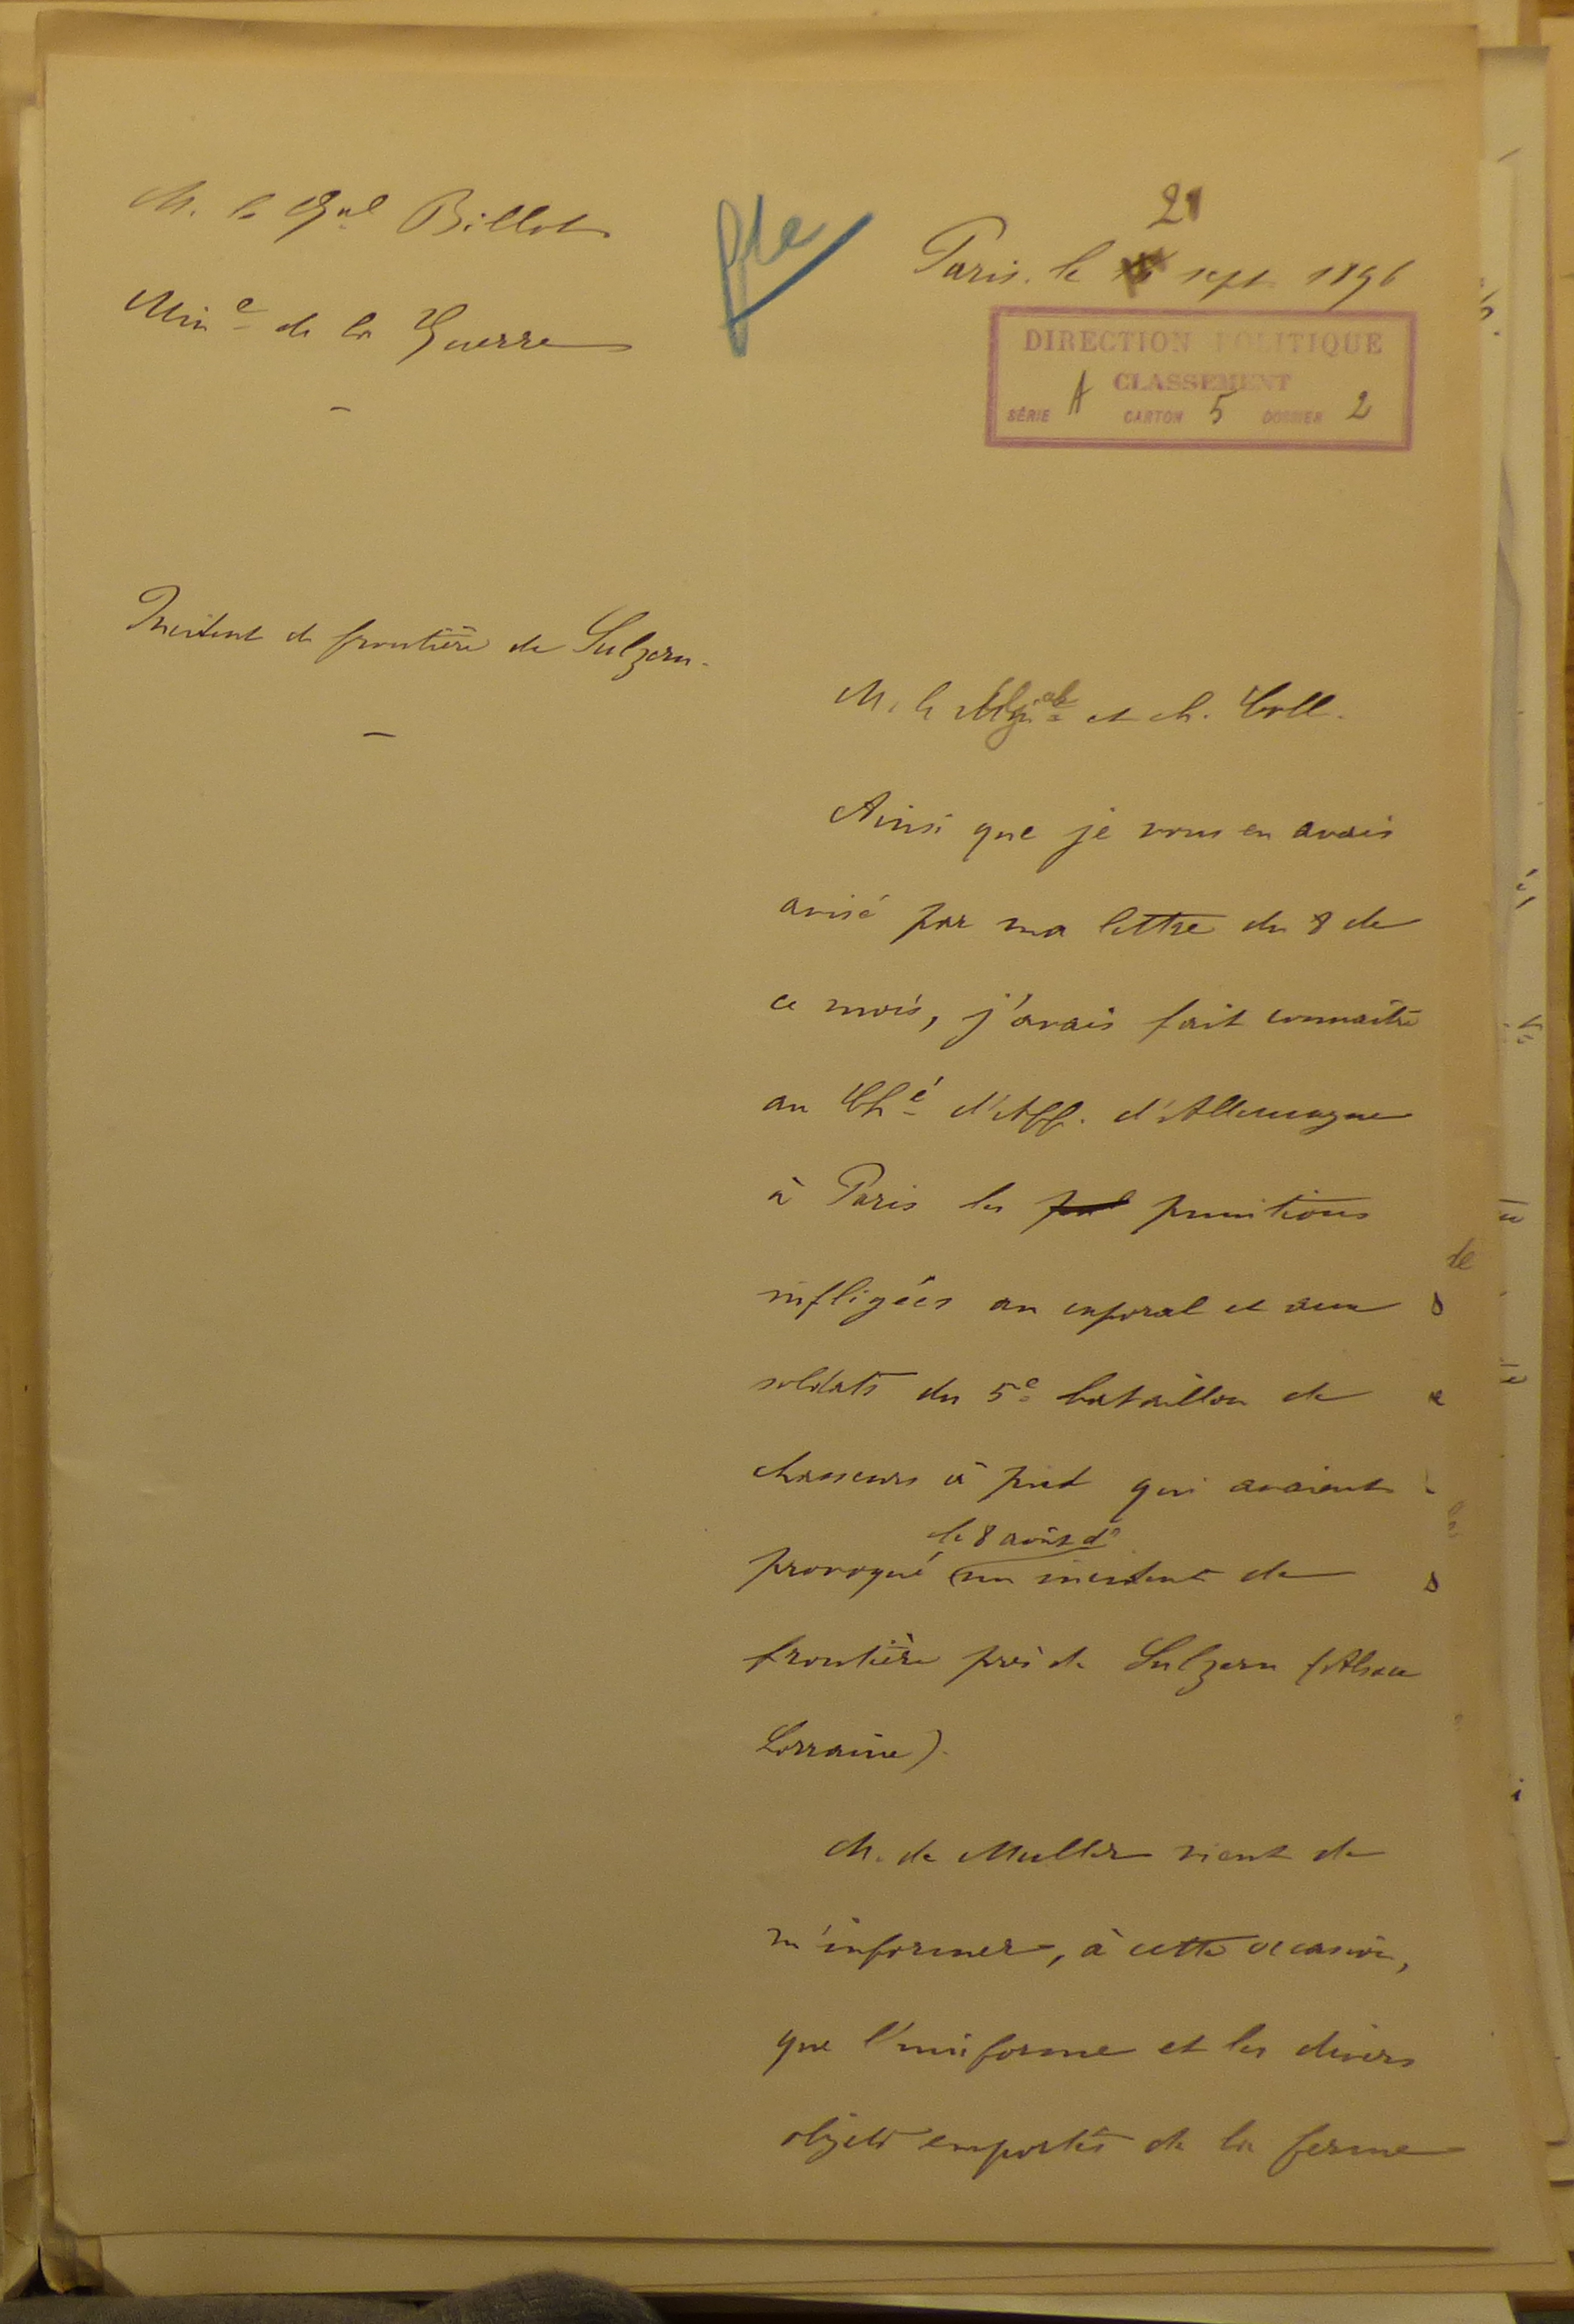 M. le Gal Billot
Mine de la Guerre
fle
21
Paris, le sept 1896
DIRECTION POLITIQUE
CLASSEMENT
SÉRIE A CARTON 5 DOSSIER 2
Incident de frontière de Sulzern.
M. le et ch. Coll.
Ainsi que je vous en avais
avisé par ma lettre du 8 de
ce mois, j'avais fait connaître
auChé d'Aff. d'Allemagne
à Paris les punitions
infligées au caporal et aux
soldats du 5e bataillon de
chasseurs à pied qui avaient
le 8 août dr
provoqué un incident de
frontière près de Sulzern (Alsace
Lorraine).
M. de Muller vient de
m'informer, à cette occasion,
que l'uniforme et les divers
objets emportés de la ferme